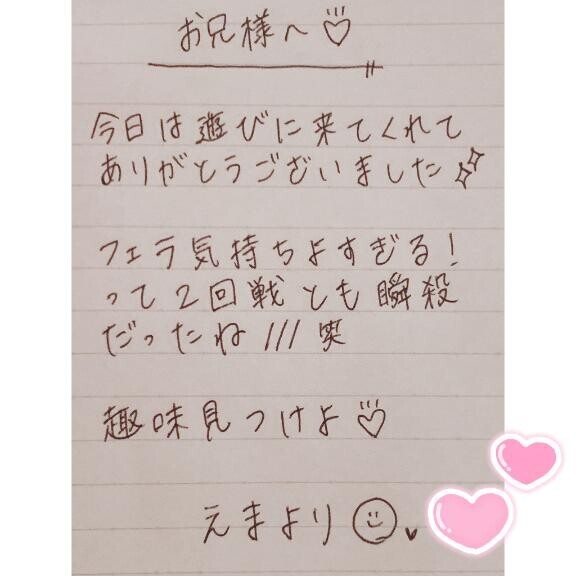 お兄様へ♡
今日は遊びに来てくれて
ありがとうございました
フェラ気持ちよすぎる!
って2回戦とも瞬殺
だったね///笑
趣味見つけよ♡
えまより